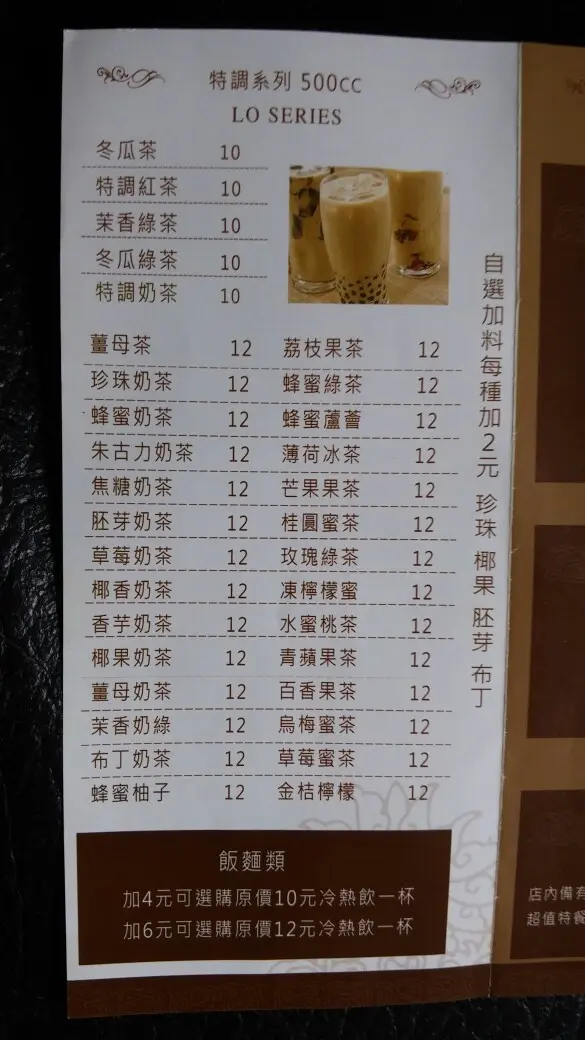 特調系列 500cc
LO SERIES
冬瓜茶 10
特調紅茶 10
茉香綠茶 10
冬瓜綠茶 10
特調奶茶 10
薑母茶 12 荔枝果茶 12
珍珠奶茶 12 蜂蜜綠茶 12
蜂蜜奶茶 12 蜂蜜蘆薈 12
朱古力奶茶 12 薄荷冰茶 12
焦糖奶茶 12 芒果果茶 12
胚芽奶茶 12 桂圓蜜茶 12
草莓奶茶 12 玫瑰綠茶 12
椰香奶茶 12 凍檸檬蜜 12
香芋奶茶 12 水蜜桃茶 12
椰果奶茶 12 青蘋果茶 12
薑母奶茶 12 百香果茶 12
茉香奶綠 12 烏梅蜜茶 12
布丁奶茶 12 草莓蜜茶 12
蜂蜜柚子 12 金桔檸檬 12
自選加料每種加2元 珍珠 椰果 胚芽 布丁
飯麵類
加4元可選購原價10元冷熱飲一杯
加6元可選購原價12元冷熱飲一杯
店內備有
超值特餐